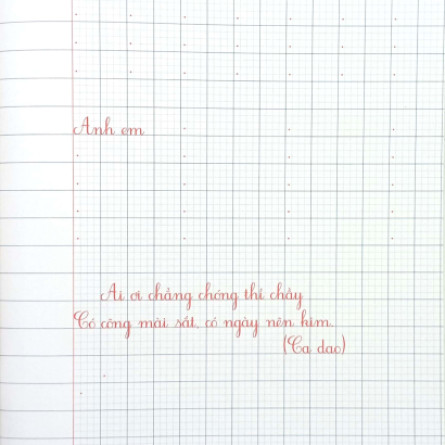 Anh em
Ai ơi chẳng chóng thì chầy
Có công mài sắt, có ngày nên kim.
(Ca dao)